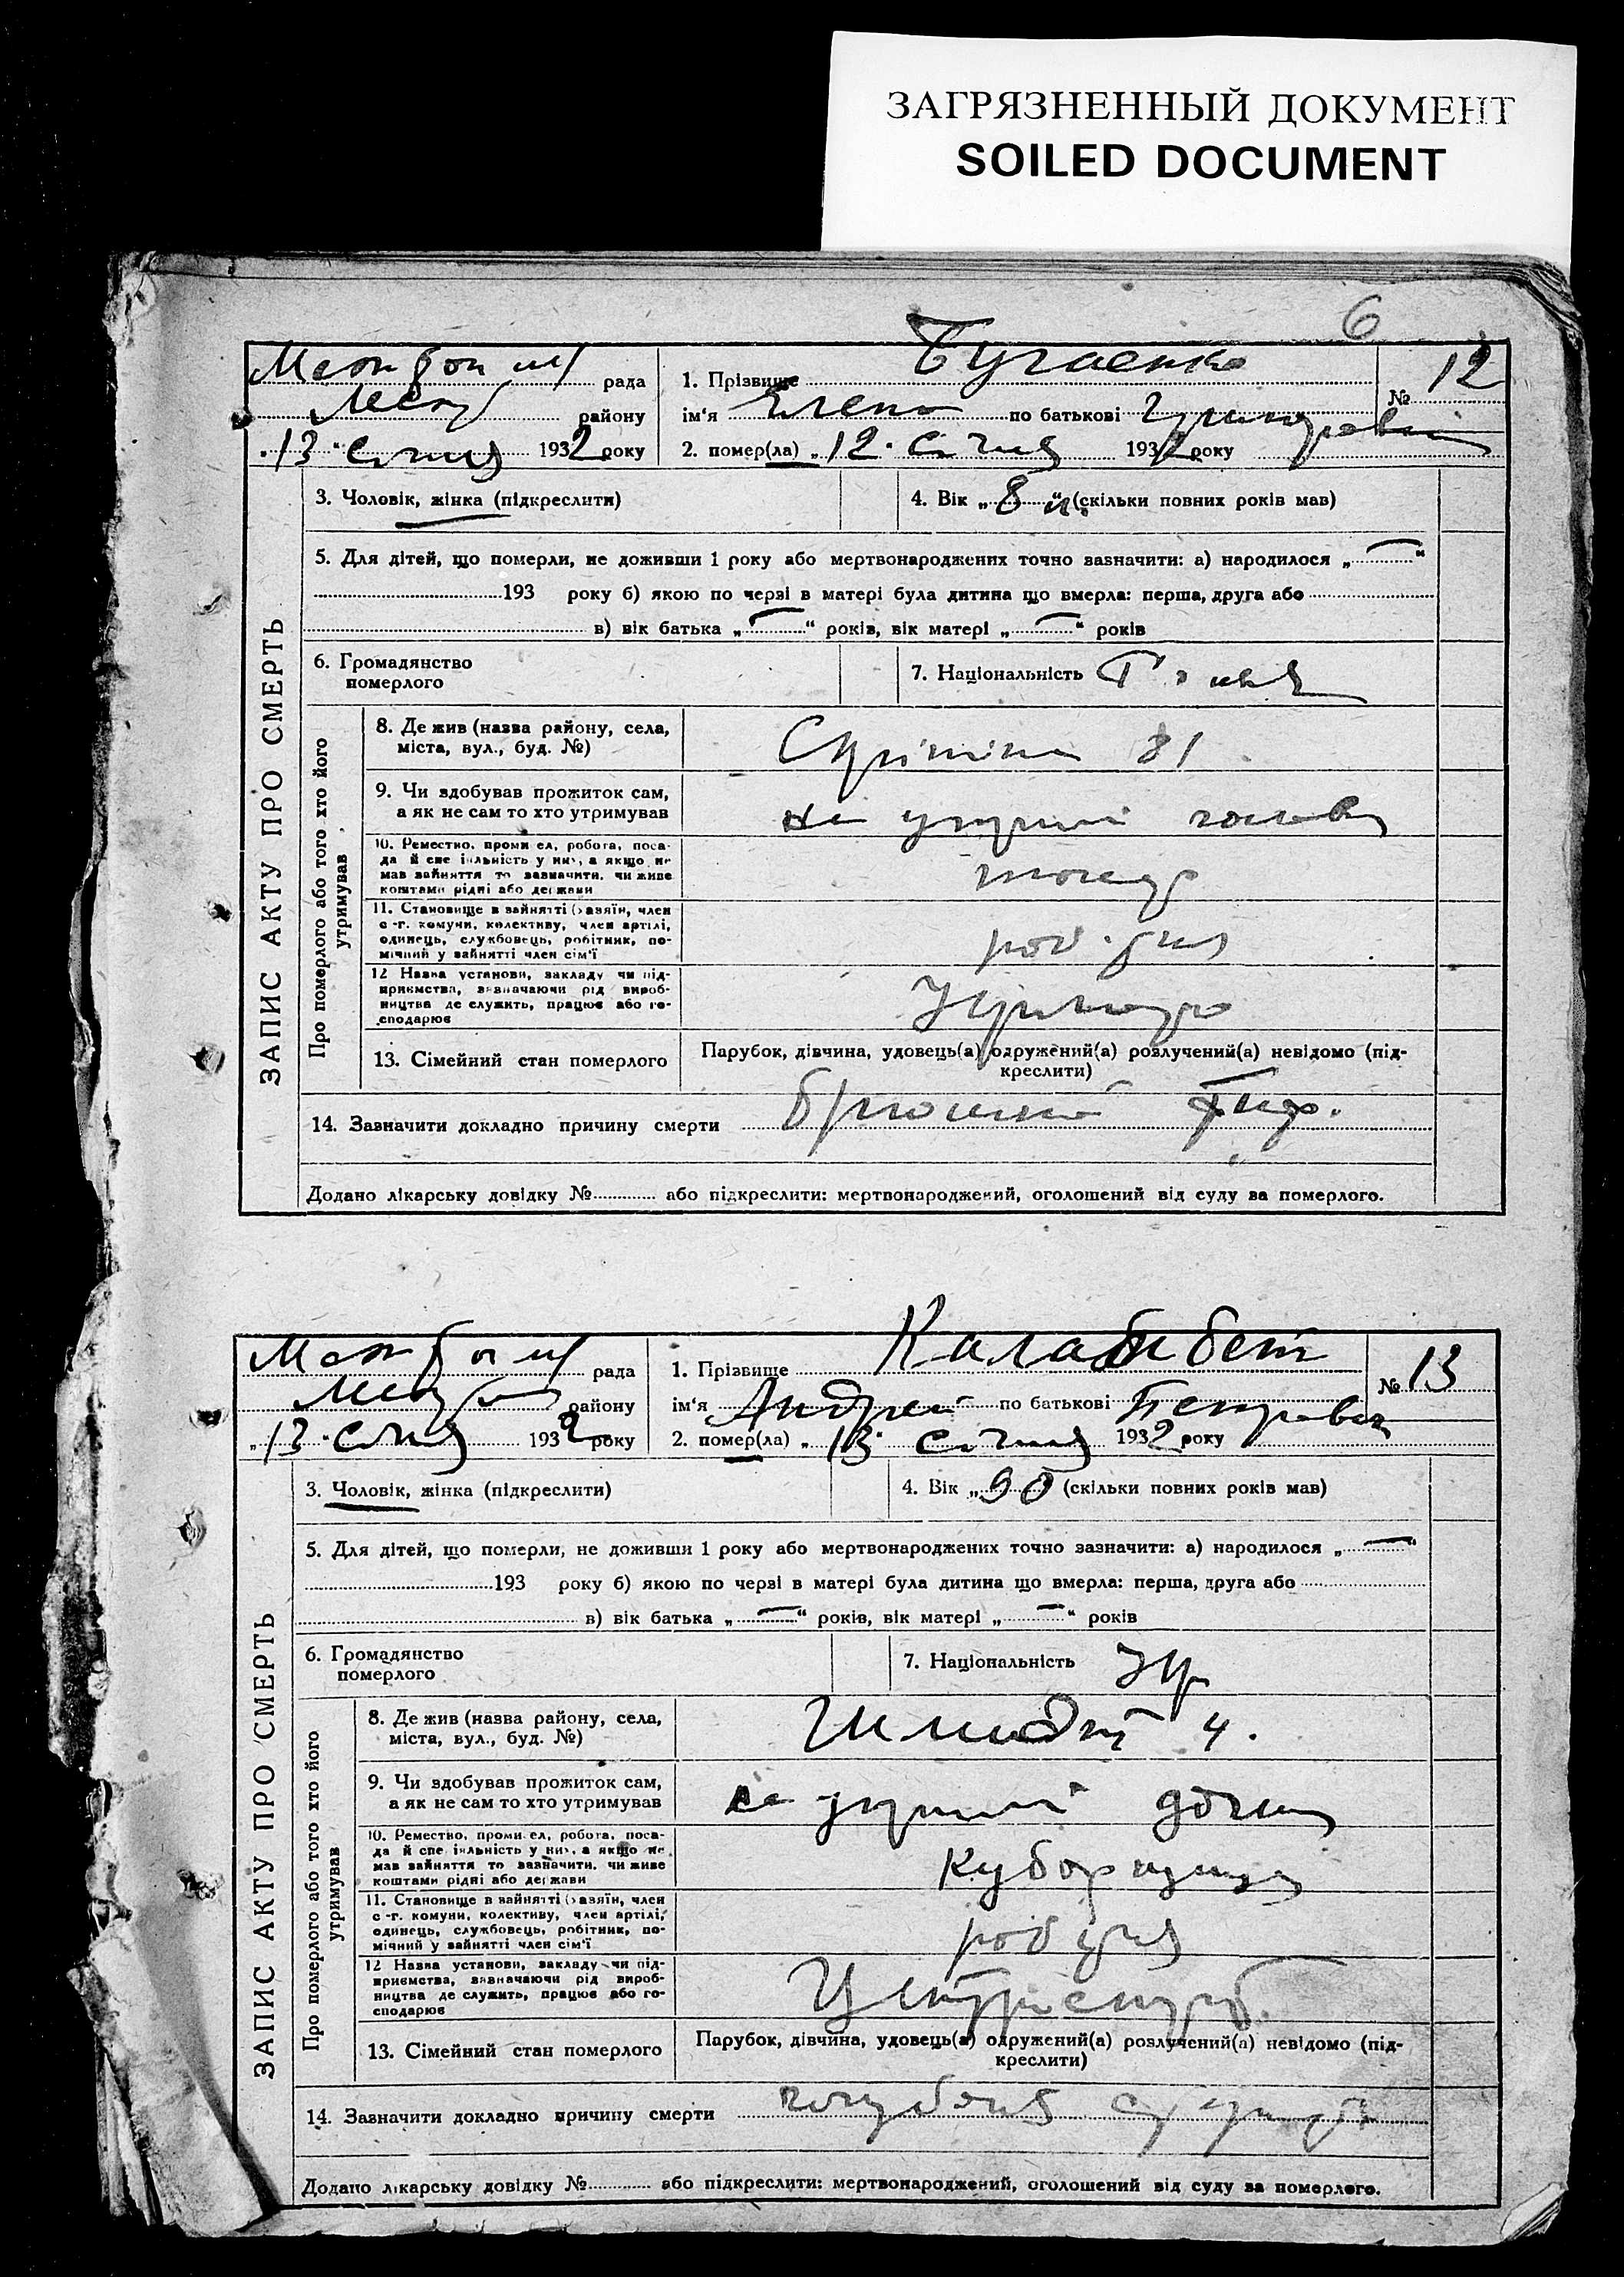 ЗАГРЯЗНЕННЫЙ ДОКУМЕНТ
SOILED DOCUMENT
6
рада
району
13 січня 1932 року
1. Прізвище Бугаенко
ім'я Елена по батькові
2. помер(ла) „12" січня 1932 року
№ 12
ЗАПИС АКТУ ПРО СМЕРТЬ
3. Чоловік, жінка (підкреслити)
4. Вік „8" (скільки повних років мав)
5. Для дітей, що померли, не доживши 1 року або мертвонароджених точно зазначити: а) народилося „—"
193 року б) якою по черзі в матері була дитина що вмерла: перша, друга або
в) вік батька „—" років, вік матері „—" років
6. Громадянство
померлого
7. Національність
Про померлого або того хто його
утримував
8. Де жив (назва району, села,
міста, вул., буд. №)
81
9. Чи здобував прожиток сам,
а як не сам то хто утримував
10. Ремество, промисел, робота, поса-
да й спеціяльність у них, а якщо не
мав зайняття то зазначити, чи живе
коштами рідні або держави
11. Становище в зайнятті (хазяїн, член
с.-г. комуни, колективу, член артілі,
одинець, службовець, робітник, по-
мічний у зайнятті член сім'ї
12 Назва установи, закладу чи під-
приємства, зазначаючи рід вироб-
ництва де служить, працює або го-
сподарює
13. Сімейний стан померлого
Парубок, дівчина, удовець(а) одружений(а) розлучений(а) невідомо (під-
креслити)
14. Зазначити докладно причину смерти тиф.
Додано лікарську довідку № або підкреслити: мертвонароджений, оголошений від суду за померлого.
рада
району
„13" січня 1932 року
1. Прізвище
ім'я Андрей по батькові Петрович
2. помер(ла) „13" січня 1932 року
№ 13
ЗАПИС АКТУ ПРО СМЕРТЬ
3. Чоловік, жінка (підкреслити)
4. Вік „90 (скільки повних років мав)
5. Для дітей, що померли, не доживши 1 року або мертвонароджених точно зазначити: а) народилося „—"
193 року б) якою по черзі в матері була дитина що вмерла: перша, друга або
в) вік батька „—" років, вік матері „—" років
6. Громадянство
померлого
7. Національність Укр
Про померлого або того хто його
утримував
8. Де жив (назва району, села,
міста, вул., буд. №)
4.
9. Чи здобував прожиток сам,
а як не сам то хто утримував
дочки
10. Ремество, промисел, робота, поса-
да й спеціяльність у них, а якщо не
мав зайняття то зазначити, чи живе
коштами рідні або держави
11. Становище в зайнятті (хазяїн, член
с.-г. комуни, колективу, член артілі,
одинець, службовець, робітник, по-
мічний у зайнятті член сім'ї
12 Назва установи, закладу чи під-
приємства, зазначаючи рід вироб-
ництва де служить, працює або го-
сподарює
13. Сімейний стан померлого
Парубок, дівчина, удовець(а) одружений(а) розлучений(а) невідомо (під-
креслити)
14. Зазначити докладно причину смерти
Додано лікарську довідку № або підкреслити: мертвонароджений, оголошений від суду за померлого.